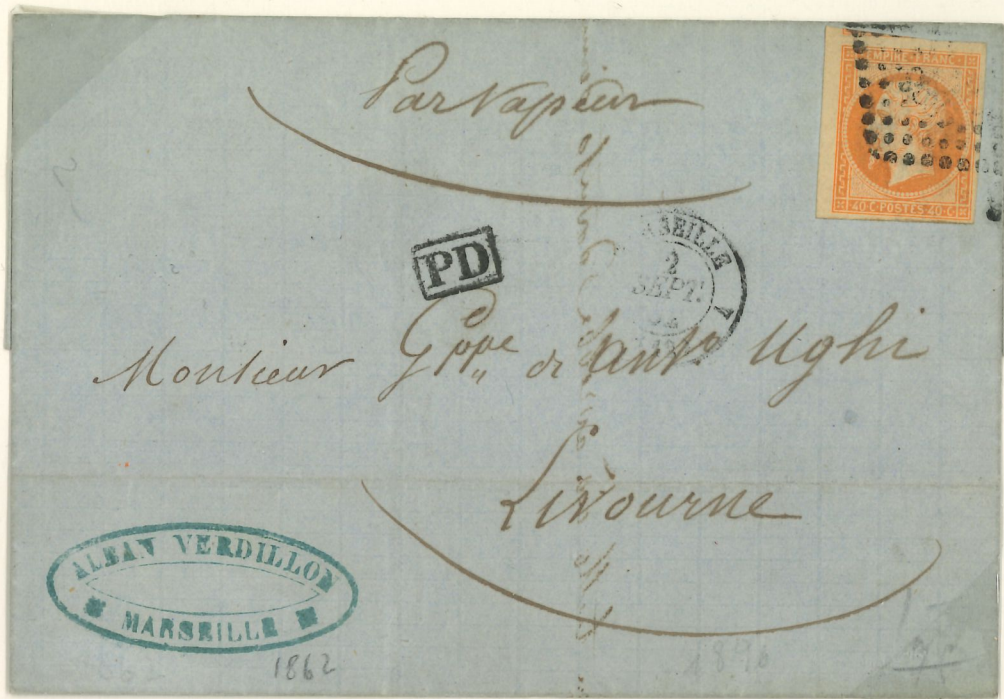 Par Vapeur
EMPIRE FRANC
40 C POSTES 40 C
PD
MARSEILLE
2
SEPT.
62
Monsieur Gppe di Anto Ughi
Livourne
ALBAN VERDILLON
MARSEILLE
1862